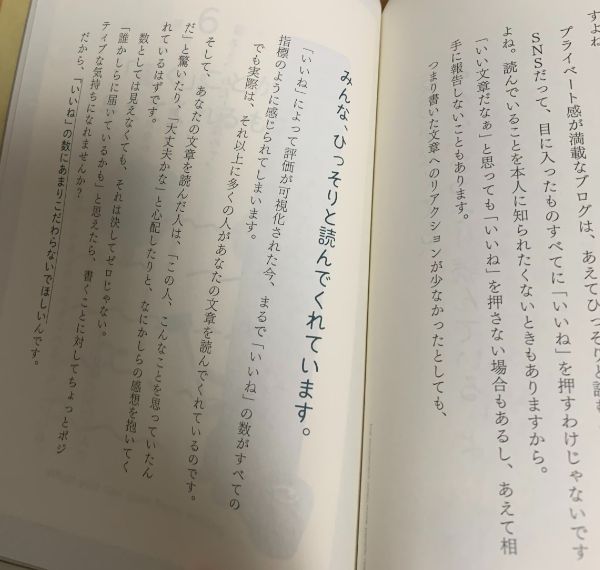 すよね
プライベート感が満載なブログは、あえてひっそりと読む
SNSだって、目に入ったものすべてに「いいね」を押すわけじゃないです
よね。読んでいることを本人に知られたくないときもありますから。
「いい文章だなぁ」と思っても「いいね」を押さない場合もあるし、あえて相
手に報告しないこともあります。
つまり書いた文章へのリアクションが少なかったとしても、
みんな、ひっそりと読んでくれています。
「いいね」によって評価が可視化された今、まるで「いいね」の数がすべての
指標のように感じられてしまいます。
でも実際は、それ以上に多くの人があなたの文章を読んでくれているのです。
そして、あなたの文章を読んだ人は、「この人、こんなことを思っていたん
だ」と驚いたり、「大丈夫かな」と心配したりと、なにかしらの感想を抱いてく
れているはずです。
数としては見えなくても、それは決してゼロじゃない。
「誰かしらに届いているかも」と思えたら、書くことに対してちょっとポジ
ティブな気持ちになれませんか？
だから、「いいね」の数にあまりこだわらないでほしいんです。